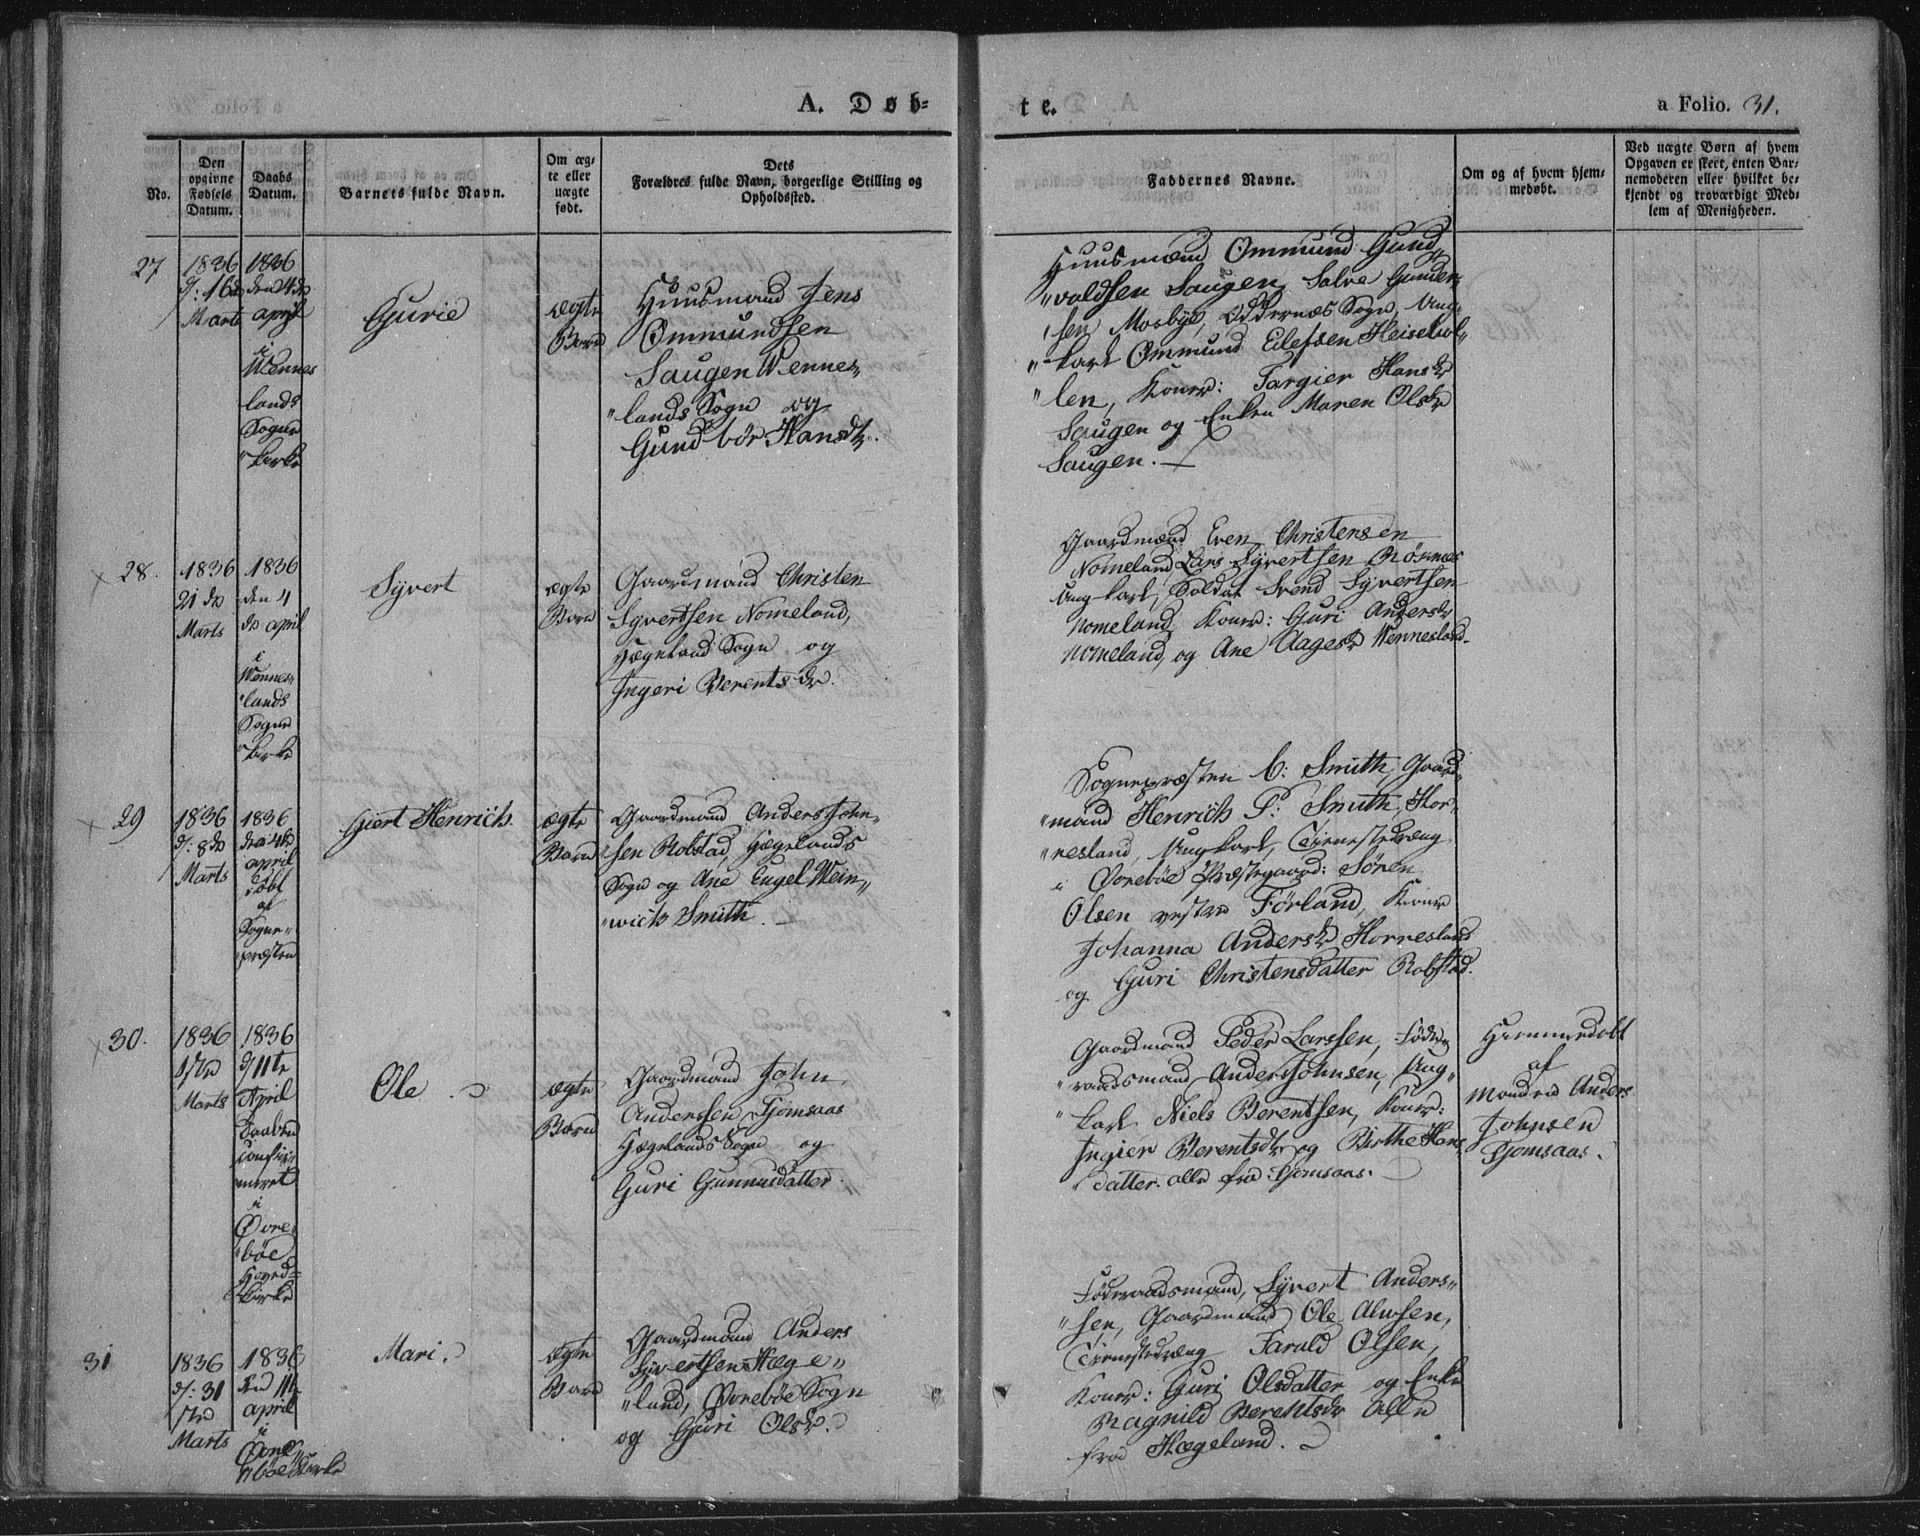 A. Døb=
te.
a Folio. 31.
No.
Den opgivne Fødsels Datum.
Daabs Datum.
Barnets fulde Navn.
Om æg= te eller uægte født.
Dets Forældres fulde Navn, borgerlige Stilling og Opholdssted.
Faddernes Navne.
Om og af hvem hjem= medøbt.
Ved uægte Børn af hvem Opgaven er skeet, enten Bar= nemoderen eller hvilket be= kjendt og troværdigt Med= lem af Menigheden.
27
1836
d: 16de
Marts
1836
den 4de
april
i
Wennes
lands
Sogne
kirke
Gurie
ægte
Barn
Huusmand Jens
Ommundsen
Saugen Wennes„
„lands Sogn og
Gundbør Hansdtr.
Huusmænd Ommund Gund„
„valdsen Saugen, Salve Gunder„
„sen Mosbye, Oddernæs Sogn, Ung„
„karl Ommund Eilefsen Heisehol„
„len, Koner: Targier Hansdr
Saugen og Enken Maren Olsdr
Saugen.
28.
1836
21 de
Marts
1836
den 4
de april
i
Wennes„
„lands
Sogne
„kirke
Syvert
ægte
Barn
Gaardmand Christen
Syvertsen Nomeland,
Hægeland Sogn og
Ingeri Berentsdr.
Gaardmænd Even Christensen
Nomeland, Lars Syvertsen
Ungkarl, Soldat Svend Syvertsen
Nomeland, Koner: Guri Andersdr
Nomeland, og Ane Aagesdr Wennesland.
29
1836
d: 8de
Marts
1836
den 4de
april
døbt
af
Sogne„
præsten
Giert Henrich.
ægte
Barn
Gaardmand Anders John„
„sen Robstad, Hægelands
Sogn og Ane Engel Wein„
„wich Smith.
Sognepræsten C: Smith, Gaard„
„mand Henrich P: Smith, Hor„
„nesland, Ungkarl, Tienestedræng
i Øvrebøe Præstegaard: Søren
Olsen vestre Førland, Koner
Johanna Andersdr Hornesland
og Guri Christensdatter Robstad.
30.
1836
17de
Marts
1836
d/11te
April
Daaben
confir„
meret
i
Øvre„
„bøe
Hoved=
kirke
Ole
ægte
Barn
Gaardmand John
Anderssen Tjomsaas
Hægelands Sogn og
Guri Gunnusdatter.
Gaardmand Peder Larssen, Føde„
„raadsmand Anders Johnsen, Ung„
„karl Niels Berentsen, Koner:
Ingier Berentsdtr og Birthe Hans
datter. alle fra Tjomsaas.
Hiemmedøbt
af
Manden Anders
Johnsen
Tjomsaas.
31
1836
d: 31
ste
Marts
1836
den 11te
april
i
Øvre„
„bøe Kirke
Mari.
ægte
Barn
Gaardmand Anders
Syvertsen Hæge„
„land, Øvrebøe Sogn
og Guri Olsdr.
Føderaadsmand, Syvert Anders„
„sen, Gaardmand Ole Alwsen,
Tienestedræng Tarald Olsen,
Koner: Guri Olsdatter og Enke
Ragnild Berentsdr Alle
fra Hægeland.